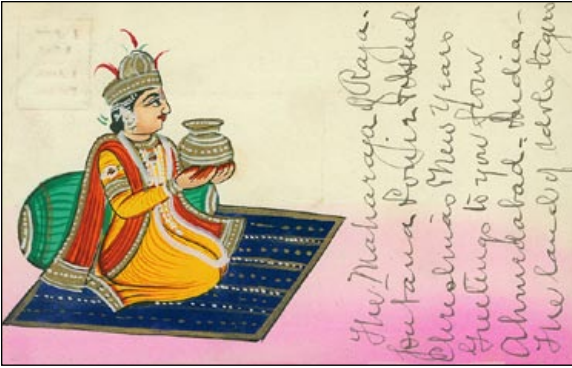 The Maharaja of Raja-
putana
Christmas & New Years
Greetings to you from
Ahmedabad - India -
The land of idols tigers